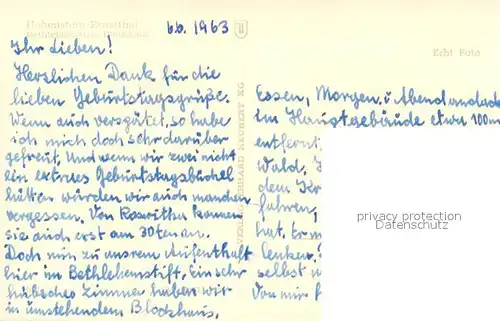 Hohenstein-Ernstthal
6.6. 1963
Echt Foto
Ihr Lieben!
Herzlichen Dank für die
lieben Geburtstagsgrüße.
Wenn auch verspätet, so habe
ich mich doch sehr darüber
gefreut. Und wenn wir zwei nicht
ein extraes Geburtstagsbüchel
hätten würden wir auch manchen
vergessen. Von Roswitha kamen
sie auch erst am 30ten an.
Doch nun zu unsrem Aufenthalt
hier im Bethlehemstift. Ein sehr
hübsches Zimmer haben wir
in umstehendem Blockhaus.
Essen, Morgen. u Abendandacht
im Hauptgebäude etwa 100m
entfernt
Wald,
dem Kr
fahren,
hat. Er m
lenken.
selbst
Von mir
privacy protection
Datenschutz